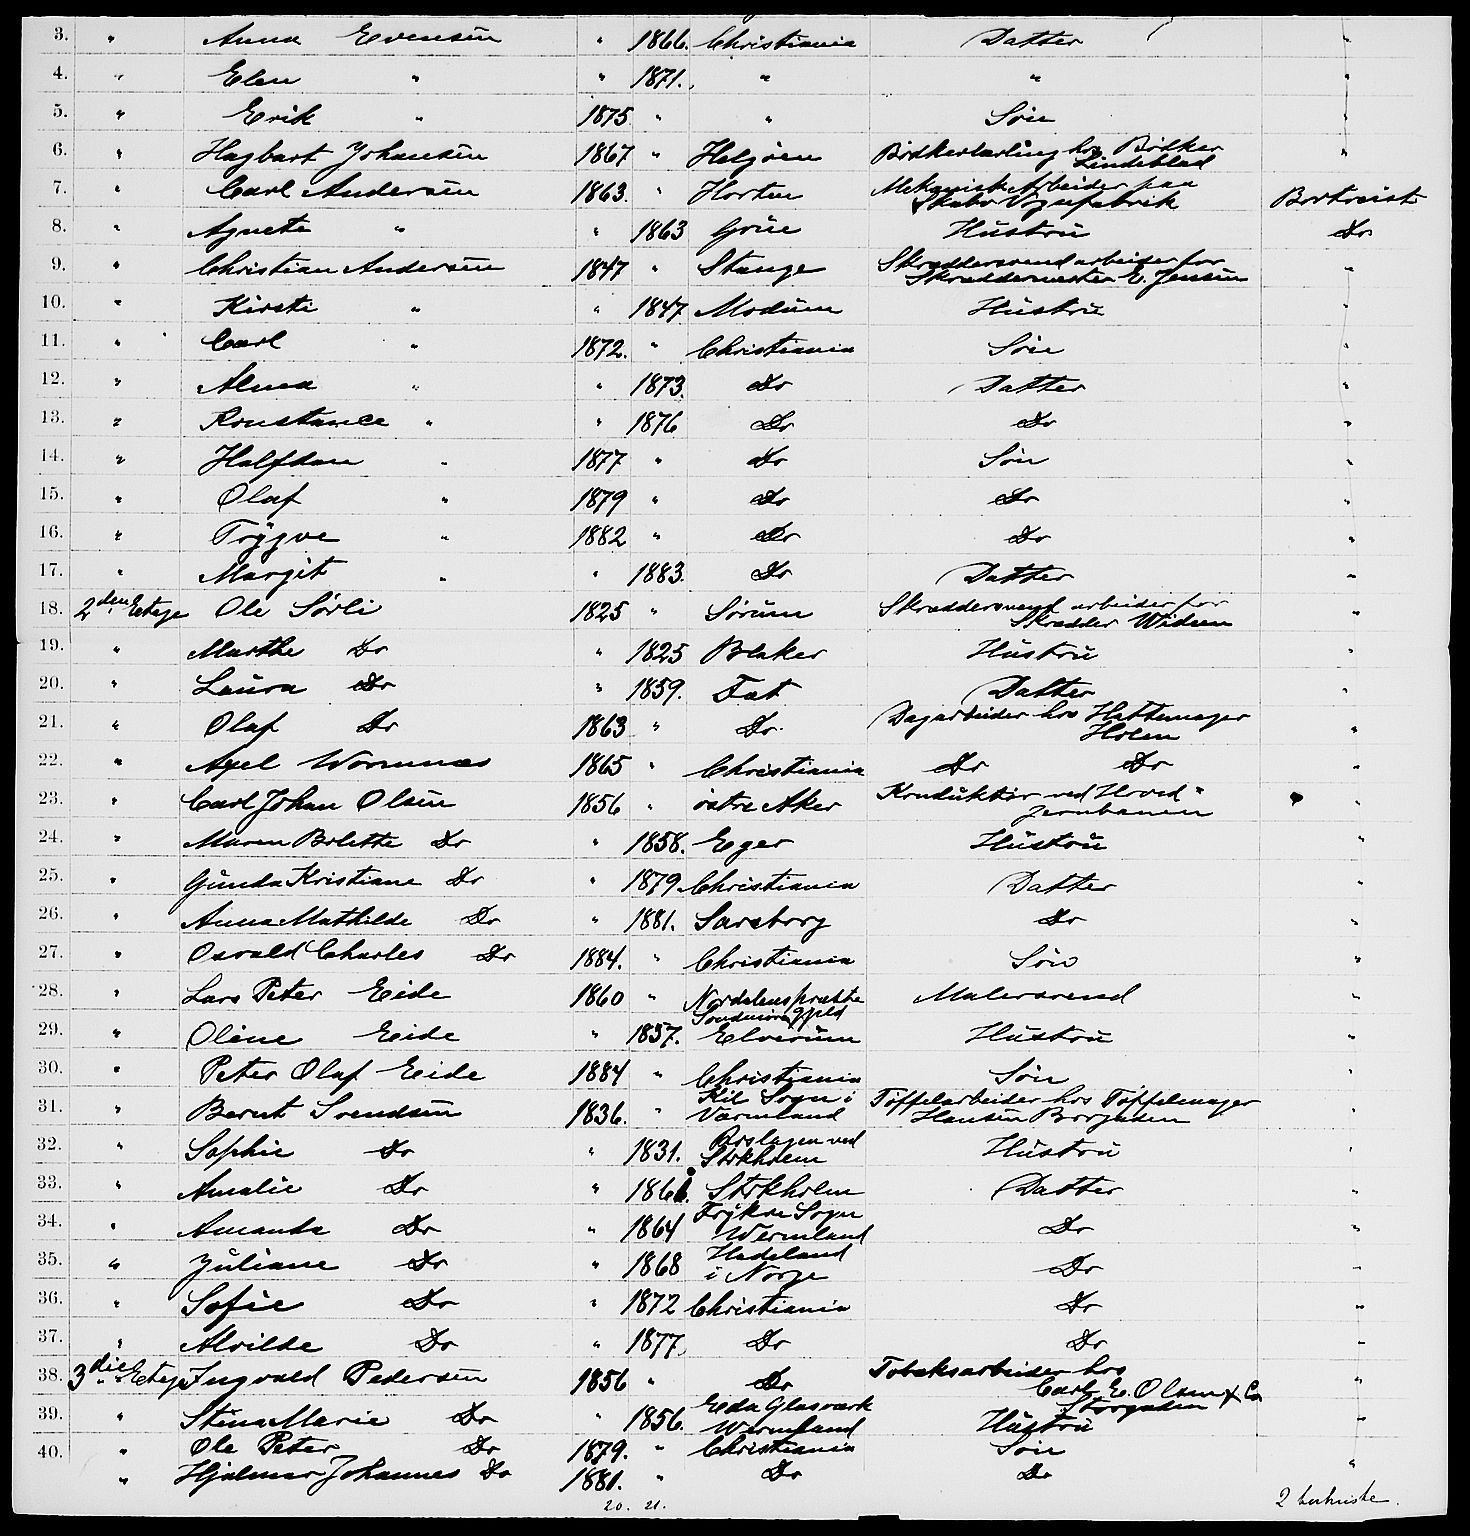 3. " Anna Evensen " 1866. Christiania Datter "
4. " Elen " " 1871. " " "
5. " Erik " 1875 " " Søn "
6. " Hagbart Johansen 1867 " Helgøen Bødkerlærling hos Bødker Lindeblad "
7. " Carl Andersen 1863. " Horten Mekanisk Arbeider paa Skabo Vognfabrik Bortreist
8. " Agnete " " 1863 Grue Hustru Do
9. " Christian Andersen 1847 " Stange Skræddersvend arbeider for Skræddermester E. Jensen "
10. " Kirsti " " 1847 Modum Hustru "
11. " Carl " 1872. " Christiania Søn "
12. " Alma " " 1873. Do Datter "
13. " Konstance " " 1876 Do Do "
14. " Halfdan " 1877 " Do Søn "
15. " Olaf " 1879 " Do Do "
16. " Trygve " 1882 " Do Do "
17. " Margit " " 1883. Do Datter "
18. 2den Etage Ole Sørli 1825 " Sørum Skræddersvend arbeider for Skrædder Widsen "
19. " Marthe Do " 1825 Blaker Hustru "
20. " Laura Do " 1859. Fet Datter "
21. " Olaf Do 1863 " Do. Dagarbeider hos Hattemager Holem "
22. " Axel Wormnæs 1865 " Christiania Do Do "
23. " Carl Johan Olsen 1856 " østre Aker Konduktør ved Hoved" jernbanen "
24. " Maren Bolette Do " 1858. Eger Hustru "
25. " Gunda Kristiane Do " 1879 Christiania Datter "
26. " Anna Mathilde Do " 1881. Sarsborg Do "
27. " Osvald Charles Do 1884. " Christiania Søn "
28. " Lars Peter Eide 1860 " Nordalens Søndmøre Malersvend "
29. " Oline Eide " 1857. Elverum Hustru "
30. " Peter Olaf Eide 1884 " Christiania Søn "
31. " Bernt Svendsen 1836. " Kil Sogn i Värmland Tøffelarbeider hos Tøffelmager Hansen Borgaden "
32. " Sophie Do " 1831. Roslagen ved Stokholm Hustru "
33. " Amalie Do " 1861. Stokholm Datter "
34. " Amanda Do " 1864 Frykne Sogn Wermland Do "
35. " Juliane Do " 1868 Hadeland i Norge Do "
36. " Sofie Do " 1872 Christiania Do "
37. " Alvilde Do " 1877. Do Do "
38. 3die Etage Ingvald Pedersen 1856 " Do Tobaksarbeider hos Carl E. Olsen & Co Storgaden "
39. " Stina Marie Do " 1856. Eda Glasværk Wermland Hustru "
40. " Ole Peter Do 1879. " Christiania Søn "
" Hjalmar Johannes Do 1881. " Do Do
20. 21. 2 bortreiste.